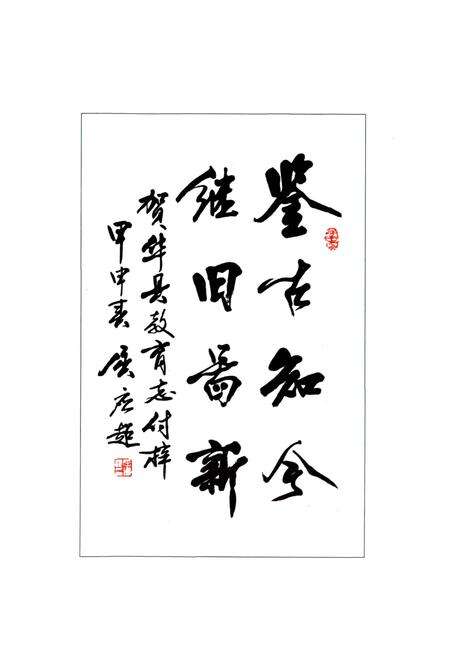 鉴古知今
继旧啚新
贺华县教育志付梓
甲申春 超